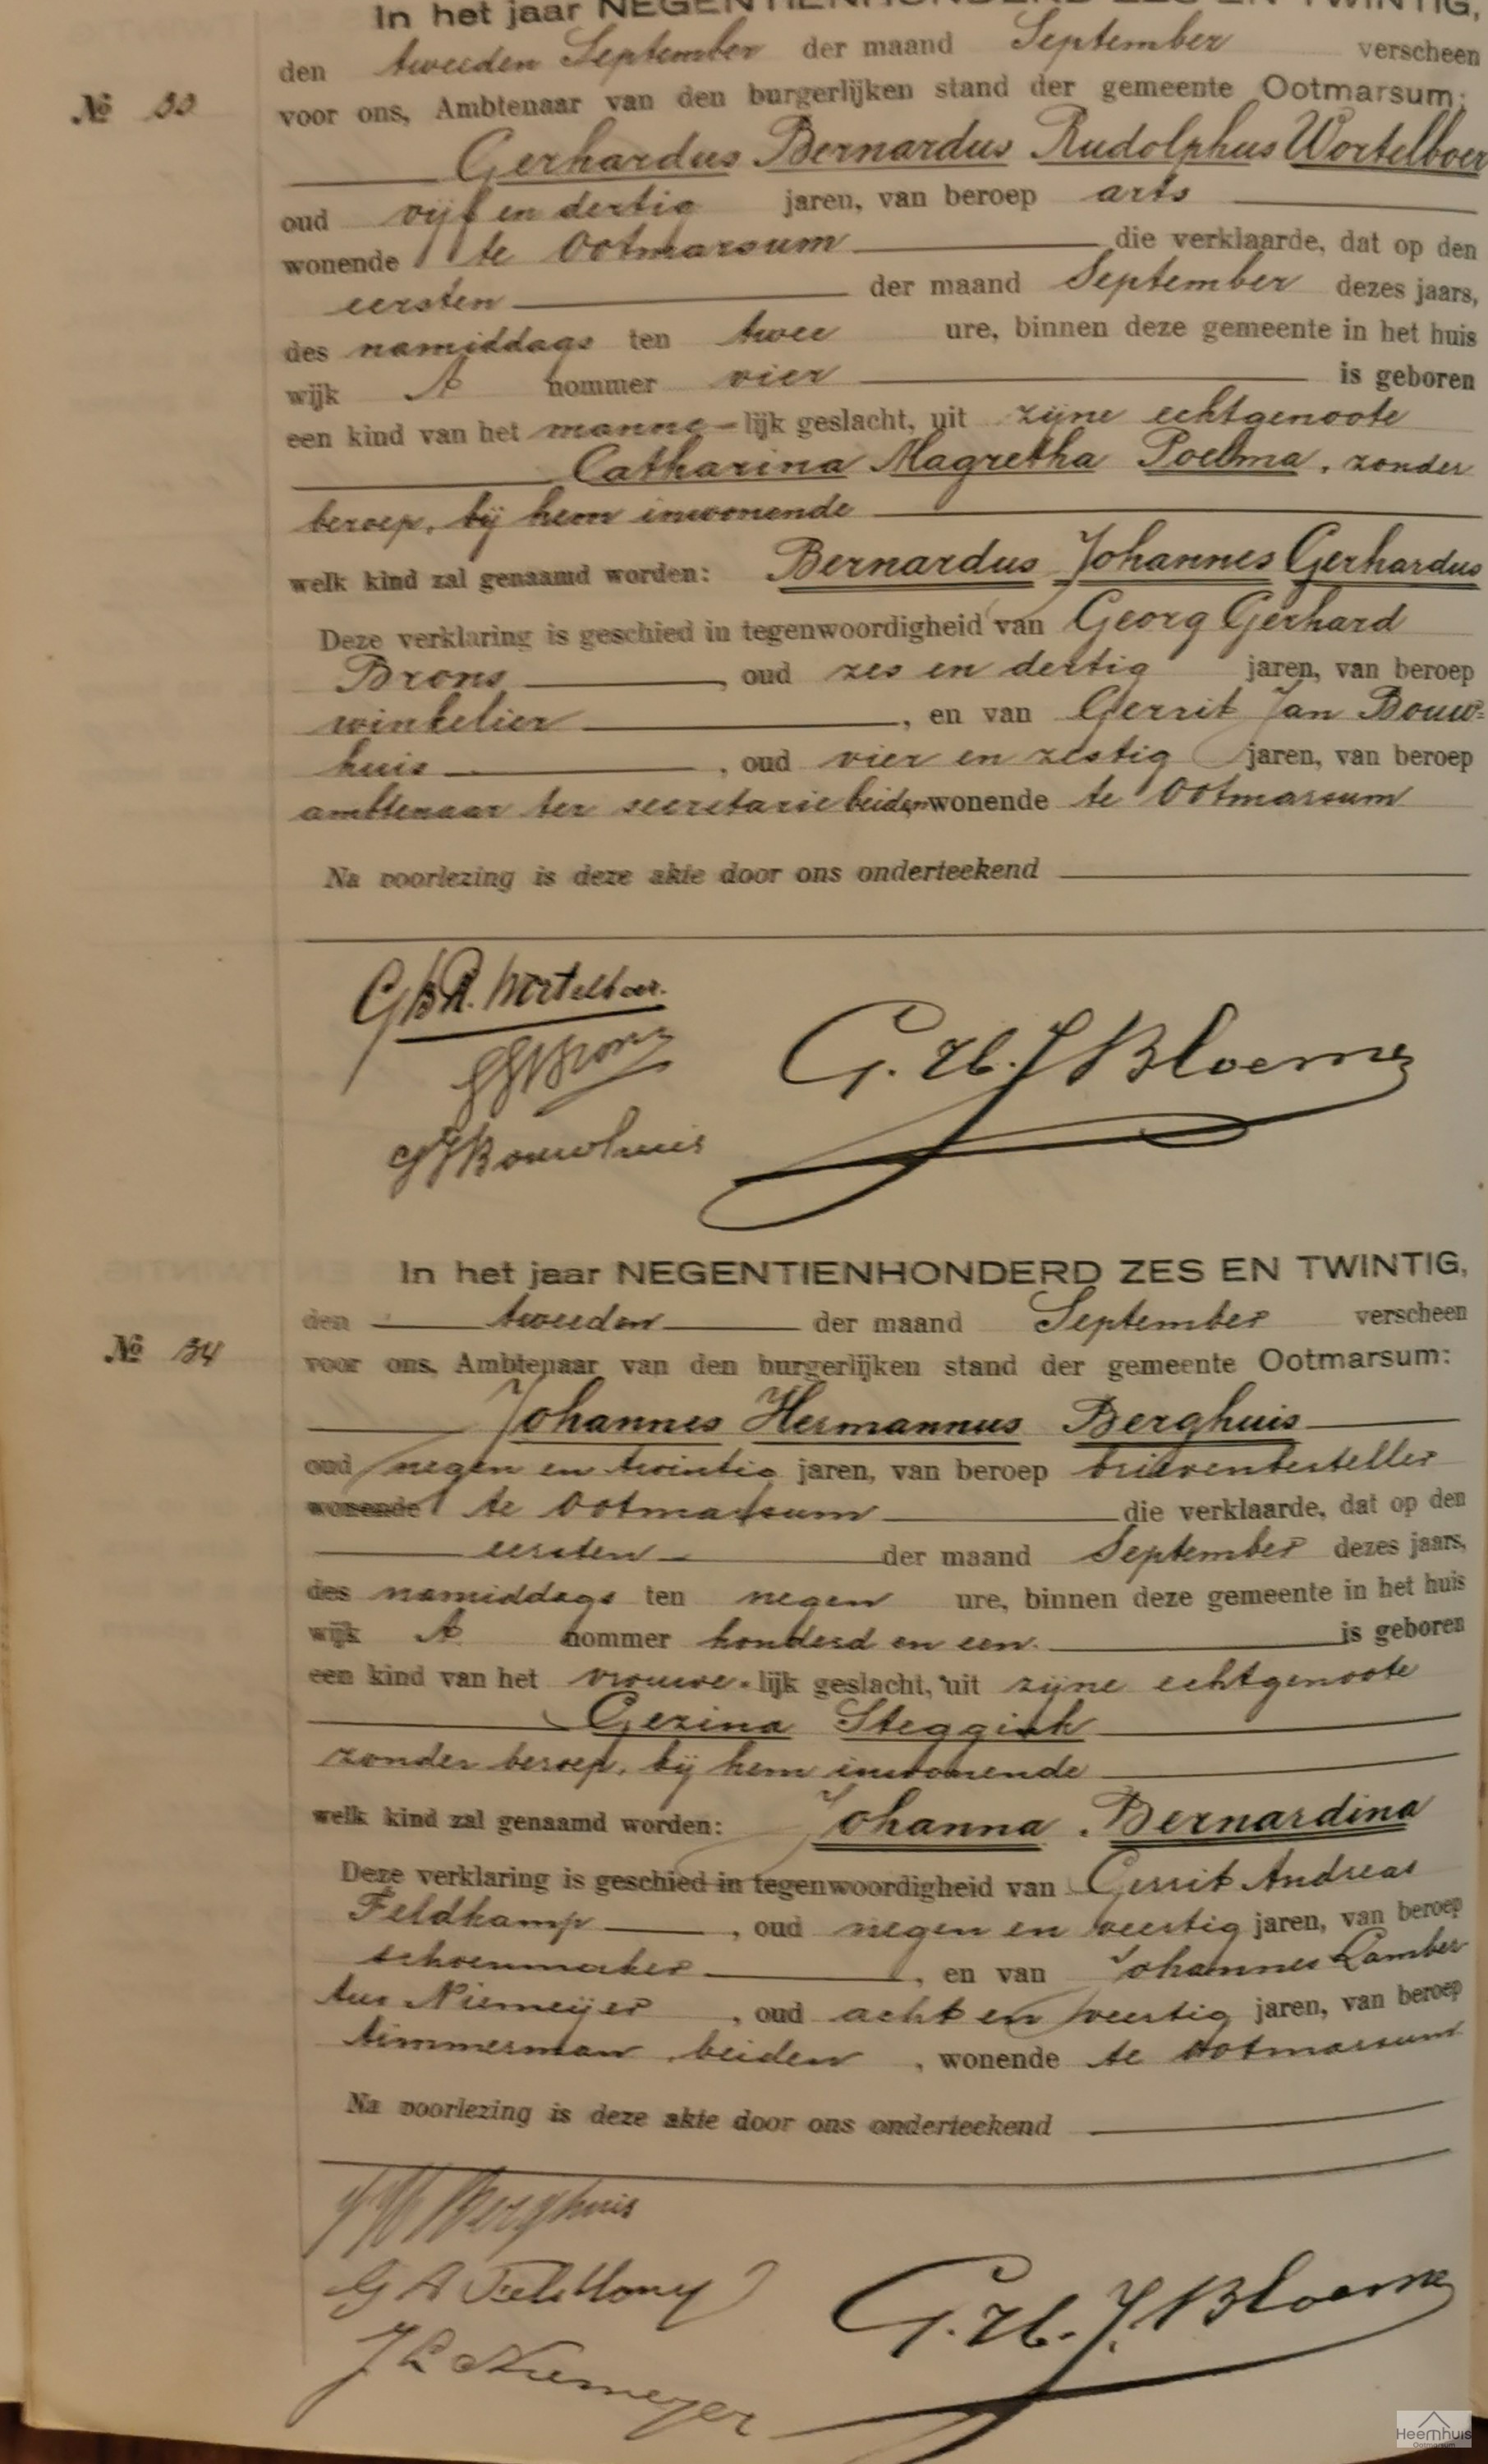 In het jaar NEGENTIENHONDERD ZES EN TWINTIG,
den tweeden September der maand September verscheen
№ 33
voor ons, Ambtenaar van den burgerlijken stand der gemeente Ootmarsum:
Gerhardus Bernardus Rudolphus Wortelboer
oud vijf en dertig jaren, van beroep arts
wonende te Ootmarsum die verklaarde, dat op den
eersten der maand September dezes jaars,
des namiddags ten twee ure, binnen deze gemeente in het huis
wijk A nommer vier is geboren
een kind van het manne-lijk geslacht, uit zijne echtgenoote
Catharina Magretha Poelma, zonder
beroep, bij hem inwonende
welk kind zal genaamd worden: Bernardus Johannes Gerhardus
Deze verklaring is geschied in tegenwoordigheid van Georg Gerhard
Brons, oud zes en dertig jaren, van beroep
winkelier, en van Gerrit Jan Bouw=
huis, oud vier en zestig jaren, van beroep
ambtenaar ter secretarie beiden wonende te Ootmarsum
Na voorlezing is deze akte door ons onderteekend
G.B.R. Wortelboer.
GGBrons
G.H.J Bloemen
GJBouwhuis
In het jaar NEGENTIENHONDERD ZES EN TWINTIG,
den tweeden der maand September verscheen
№ 34
voor ons, Ambtenaar van den burgerlijken stand der gemeente Ootmarsum:
Johannes Hermannus Berghuis
oud negen en twintig jaren, van beroep brievenbesteller
wonende te Ootmarsum die verklaarde, dat op den
eersten der maand September dezes jaars,
des namiddags ten negen ure, binnen deze gemeente in het huis
wijk A nommer honderd en een is geboren
een kind van het vrouwe-lijk geslacht, uit zijne echtgenoote
Gezina Steggink
zonder beroep, bij hem inwonende
welk kind zal genaamd worden: Johanna Bernardina
Deze verklaring is geschied in tegenwoordigheid van Gerrit Andreas
Feldkamp, oud negen en veertig jaren, van beroep
schoenmaker, en van Johannes Lamber
tus Niemeijer, oud acht en veertig jaren, van beroep
timmerman, beiden, wonende te Ootmarsum
Na voorlezing is deze akte door ons onderteekend
JH Berghuis
G A Feldkamp
G.H.J. Bloemen
J L Niemeyer
Heemhuis
Ootmarsum